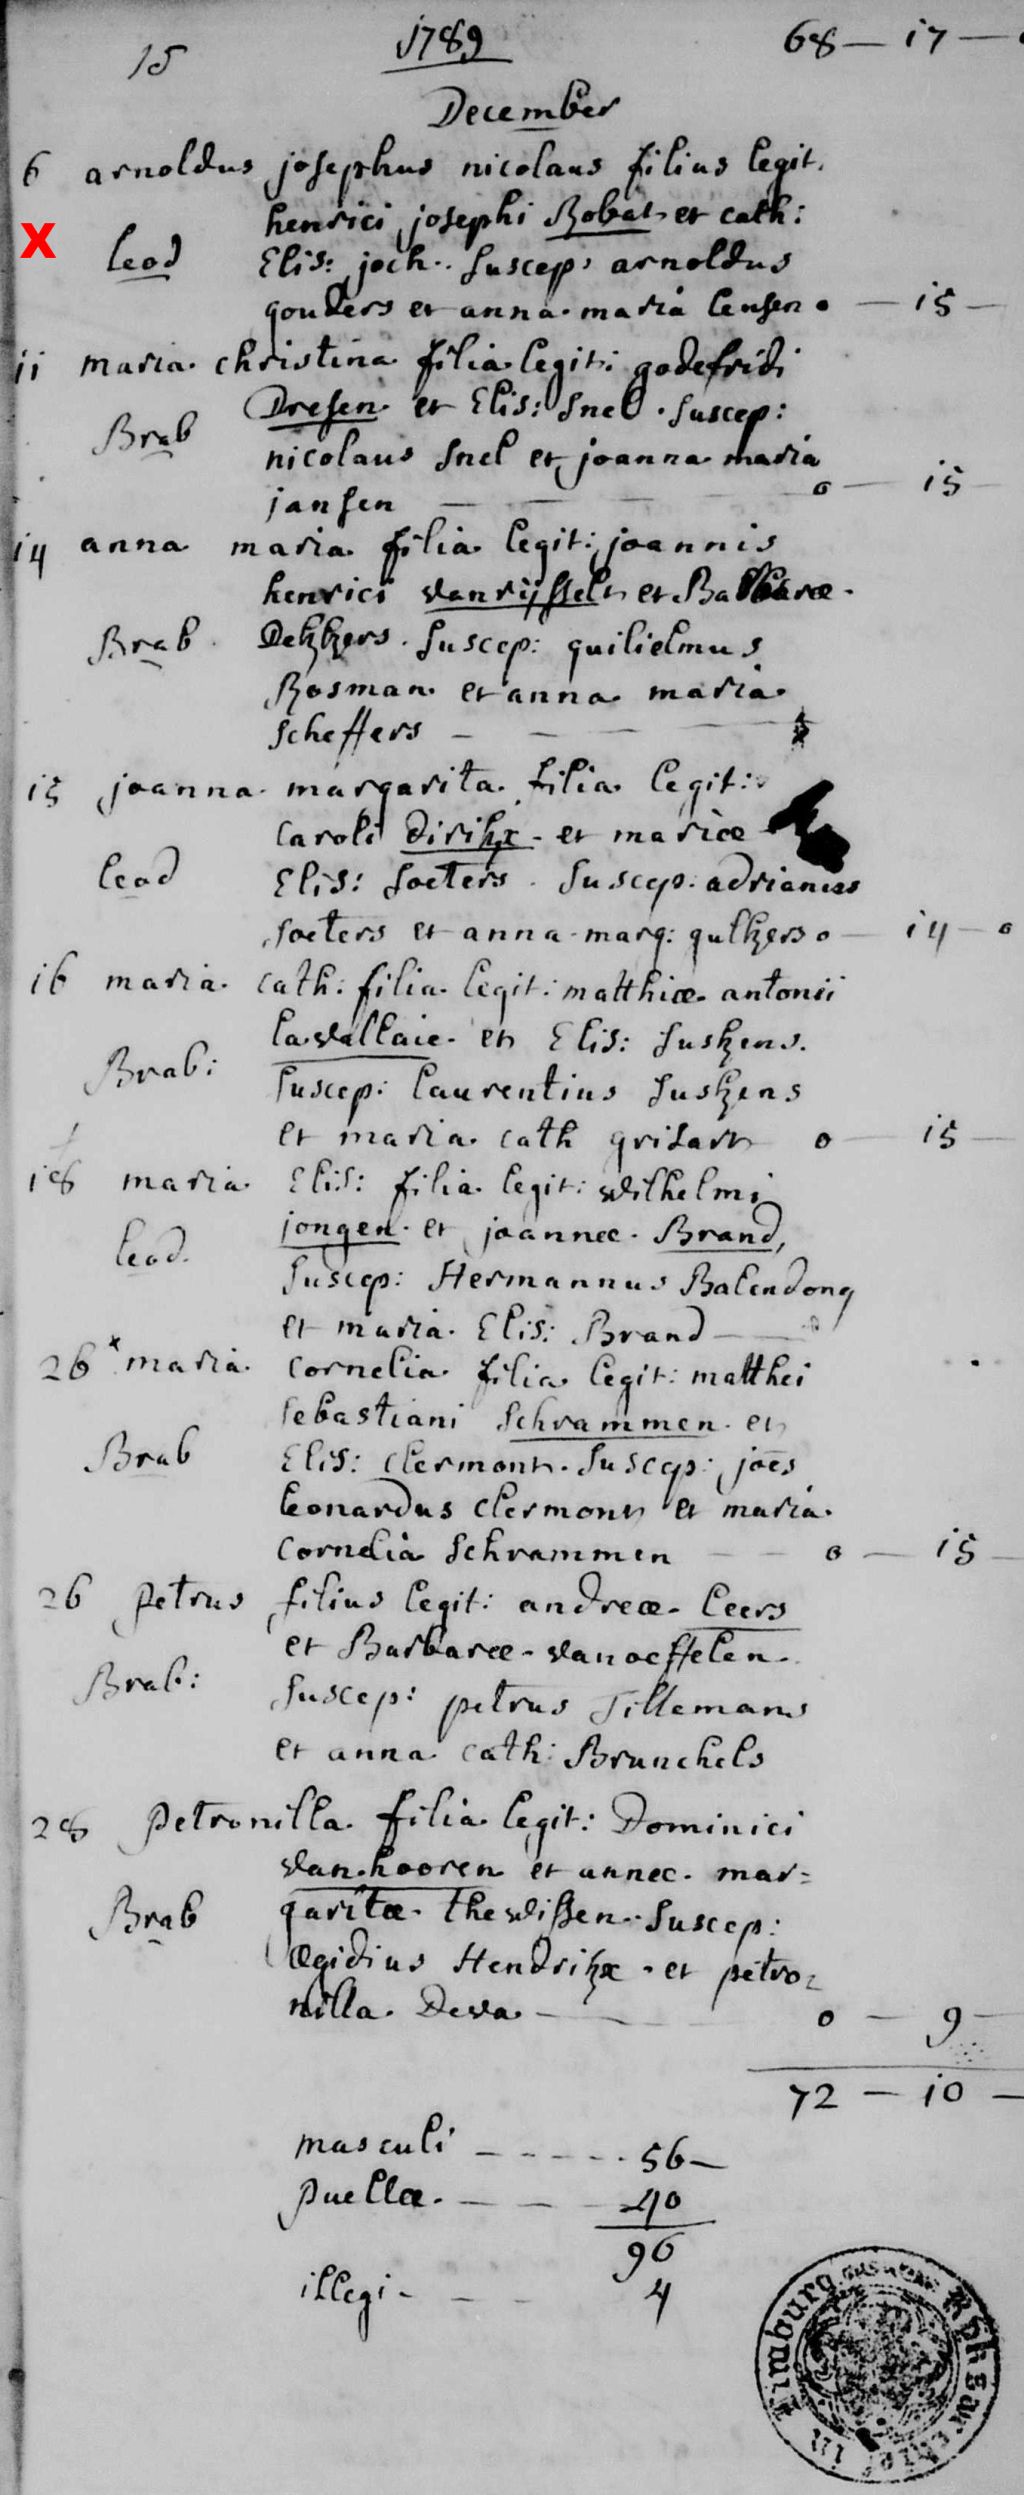 15 1789 68 — 17 —
December
6 arnoldus josephus nicolaus filius legit.
henrici josephi Robat et cath:
X
Leod Elis: joch. suscep: arnoldus
gouders et anna maria Censen o — 15 —
11 maria christina filia legit: godefridi
Dresen et Elis: Snel. suscep:
Brab
nicolaus Snel et joanna maria
jansen — — — o — 15 —
14 anna maria filia legit: joannis
henrici vanrijsselt et Barbaræ
Brab Dekkers. suscep: guilielmus
Rosman et anna maria
Scheffers — — —
15 joanna margarita filia legit:
Caroli Dirikx et mariæ
Leod Elis: soeters. suscep: adrianus
soeters et anna marg: gulkers o — 14 — o
16 maria cath: filia legit: matthiæ antonii
lavallaie et Elis: suskens.
Brab: suscep: laurentius suskens
et maria cath grisart o — 15 —
18 maria Elis: filia legit: wilhelmi
jongen et joannæ Brand,
Leod.
suscep: Hermannus Balendong
et maria Elis: Brand —
26 x maria cornelia filia legit: matthei
sebastiani Schrammen et
Brab Elis: clermont. suscep: joes
leonardus clermont et maria
cornelia Schrammen — — o — 15 —
26 petrus filius legit: andreæ Leers
et Barbaræ vanoeffelen.
Brab: suscep: petrus Tillemans
et anna cath: Brunchels
28 petronilla filia legit: Dominici
van hooren et annæ mar=
Brab garitæ thewissen. suscep:
ægidius Hendrikx et petro=
nilla Deva — — o — 9 —
72 — 10 —
masculi - - - - - 56 —
puellæ. — — — 40
96
illegi - — — 4
Rijksarchief in Limburg